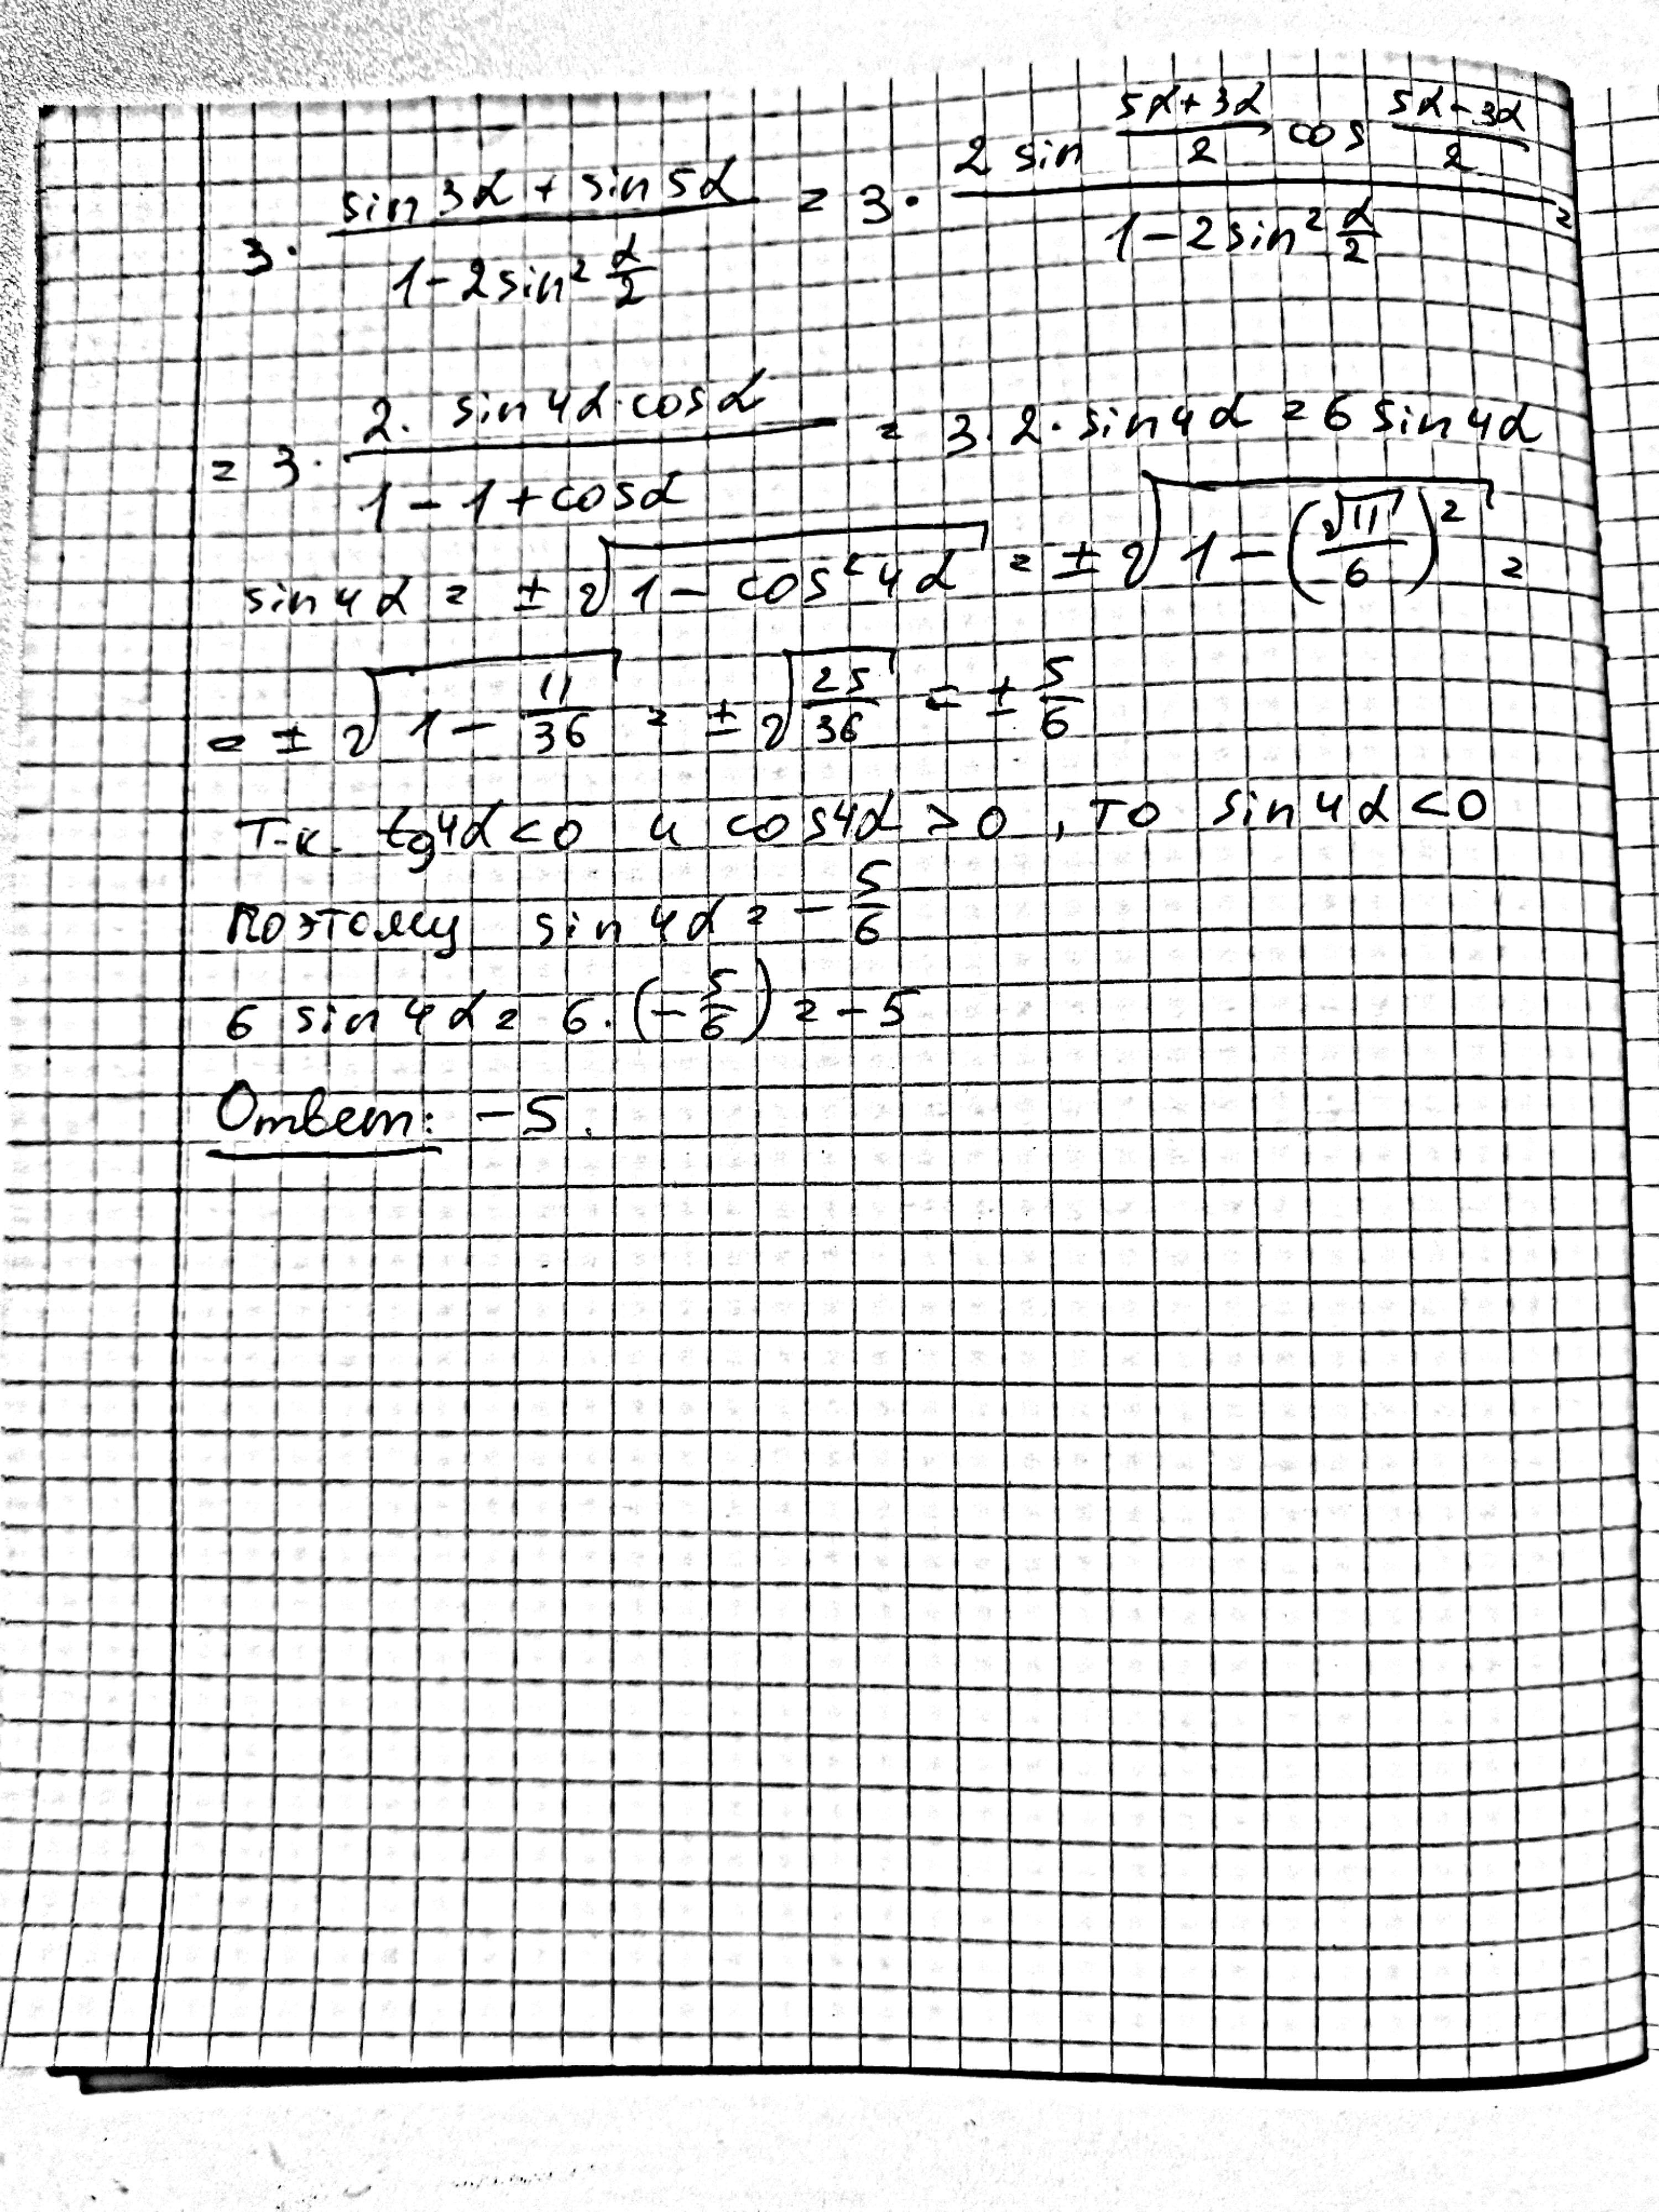 3 · (sin 3α + sin 5α)/(1 − 2 sin² α/2) = 3 · (2 sin (5α + 3α)/2 cos (5α − 3α)/2)/(1 − 2 sin² α/2) =
= 3 · (2 · sin 4α · cos α)/(1 − 1 + cos α) = 3 · 2 · sin 4α = 6 sin 4α
sin 4α = ± √(1 − cos² 4α) = ± √(1 − (√11/6)²) =
= ± √(1 − 11/36) = ± √(25/36) = ± 5/6
Т.к. tg 4α < 0 и cos 4α > 0, то sin 4α < 0
Поэтому sin 4α = − 5/6
6 sin 4α = 6 · (− 5/6) = − 5
Ответ: − 5.